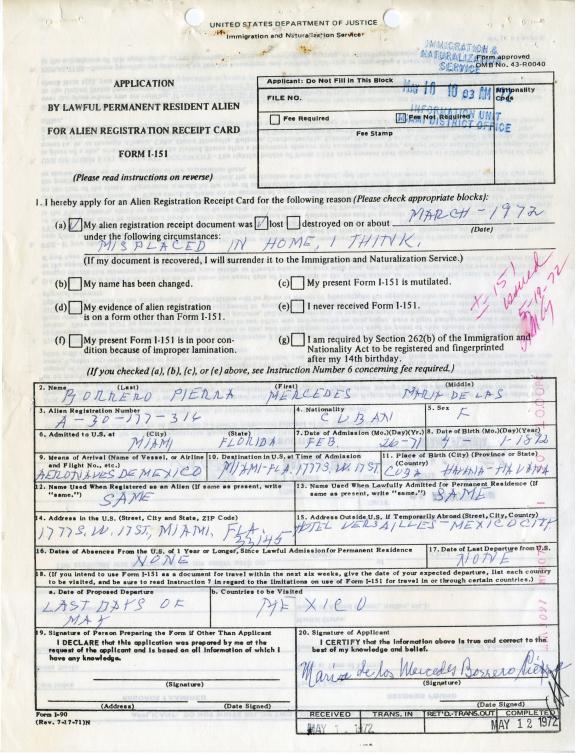 UNITED STATES DEPARTMENT OF JUSTICE
Immigration and Naturalization Service
IMMIGRATION &
NATURALIZATION
SERVICE
Form approved
OMB No. 43-R0040
APPLICATION
BY LAWFUL PERMANENT RESIDENT ALIEN
FOR ALIEN REGISTRATION RECEIPT CARD
FORM I-151
(Please read instructions on reverse)
Applicant: Do Not Fill in This Block
FILE NO.
MAY 10 10 03 AM
Nationality
Code
Fee Required
Fee Not Required
INFORMATION UNIT
MIAMI DISTRICT OFFICE
Fee Stamp
1. I hereby apply for an Alien Registration Receipt Card for the following reason (Please check appropriate blocks):
(a) My alien registration receipt document was lost destroyed on or about MARCH - 1972
under the following circumstances: (Date)
MISPLACED IN HOME, I THINK.
(If my document is recovered, I will surrender it to the Immigration and Naturalization Service.)
(b) My name has been changed.
(c) My present Form I-151 is mutilated.
(d) My evidence of alien registration
is on a form other than Form I-151.
(e) I never received Form I-151.
(f) My present Form I-151 is in poor con-
dition because of improper lamination.
(g) I am required by Section 262(b) of the Immigration and
Nationality Act to be registered and fingerprinted
after my 14th birthday.
I-151
issued
5-12-72
(If you checked (a), (b), (c), or (e) above, see Instruction Number 6 concerning fee required.)
2. Name (Last) (First) (Middle)
BORRERO PIERRA MERCEDES MARIA DE LAS
3. Alien Registration Number
A-30-177-316
4. Nationality
CUBAN
5. Sex
F
6. Admitted to U.S. at (City) (State)
MIAMI FLORIDA
7. Date of Admission (Mo.)(Day)(Yr.)
FEB. 26-71
8. Date of Birth (Mo.)(Day)(Year)
9. Means of Arrival (Name of Vessel, or Airline
and Flight No., etc.)
AERONAVES DE MEXICO
10. Destination in U.S. at Time of Admission
MIAMI-FLA. 1777 S.W. 17 ST
11. Place of Birth (City) (Province or State)
(Country)
CUBA HAVANA-HAVANA
12. Name Used When Registered as an Alien (If same as present, write
"same.")
SAME
13. Name Used When Lawfully Admitted for Permanent Residence (If
same as present, write "same.")
SAME
14. Address in the U.S. (Street, City and State, ZIP Code)
1777 S.W. 17 ST, MIAMI, FLA.
33145
15. Address Outside U.S. if Temporarily Abroad (Street, City, Country)
HOTEL VERSAILLES-MEXICO CITY
16. Dates of Absences From the U.S. of 1 Year or Longer, Since Lawful Admission for Permanent Residence
NONE
17. Date of Last Departure from U.S.
NONE
18. (If you intend to use Form I-151 as a document for travel within the next six weeks, give the date of your expected departure, list each country
to be visited, and be sure to read Instruction 7 in regard to the limitations on use of Form I-151 for travel in or through certain countries.)
a. Date of Proposed Departure
LAST DAYS OF
MAY
b. Countries to be Visited
MEXICO
19. Signature of Person Preparing the Form if Other Than Applicant
I DECLARE that this application was prepared by me at the
request of the applicant and is based on all information of which I
have any knowledge.
(Signature)
(Address) (Date Signed)
20. Signature of Applicant
I CERTIFY that the information above is true and correct to the
best of my knowledge and belief.
Maria de las Mercedes Borrero Pierra
(Signature)
(Date Signed)
Form I-90
(Rev. 7-17-71)N
RECEIVED TRANS. IN RET'D.-TRANS.OUT COMPLETED
MAY 1 1972
MAY 12 1972